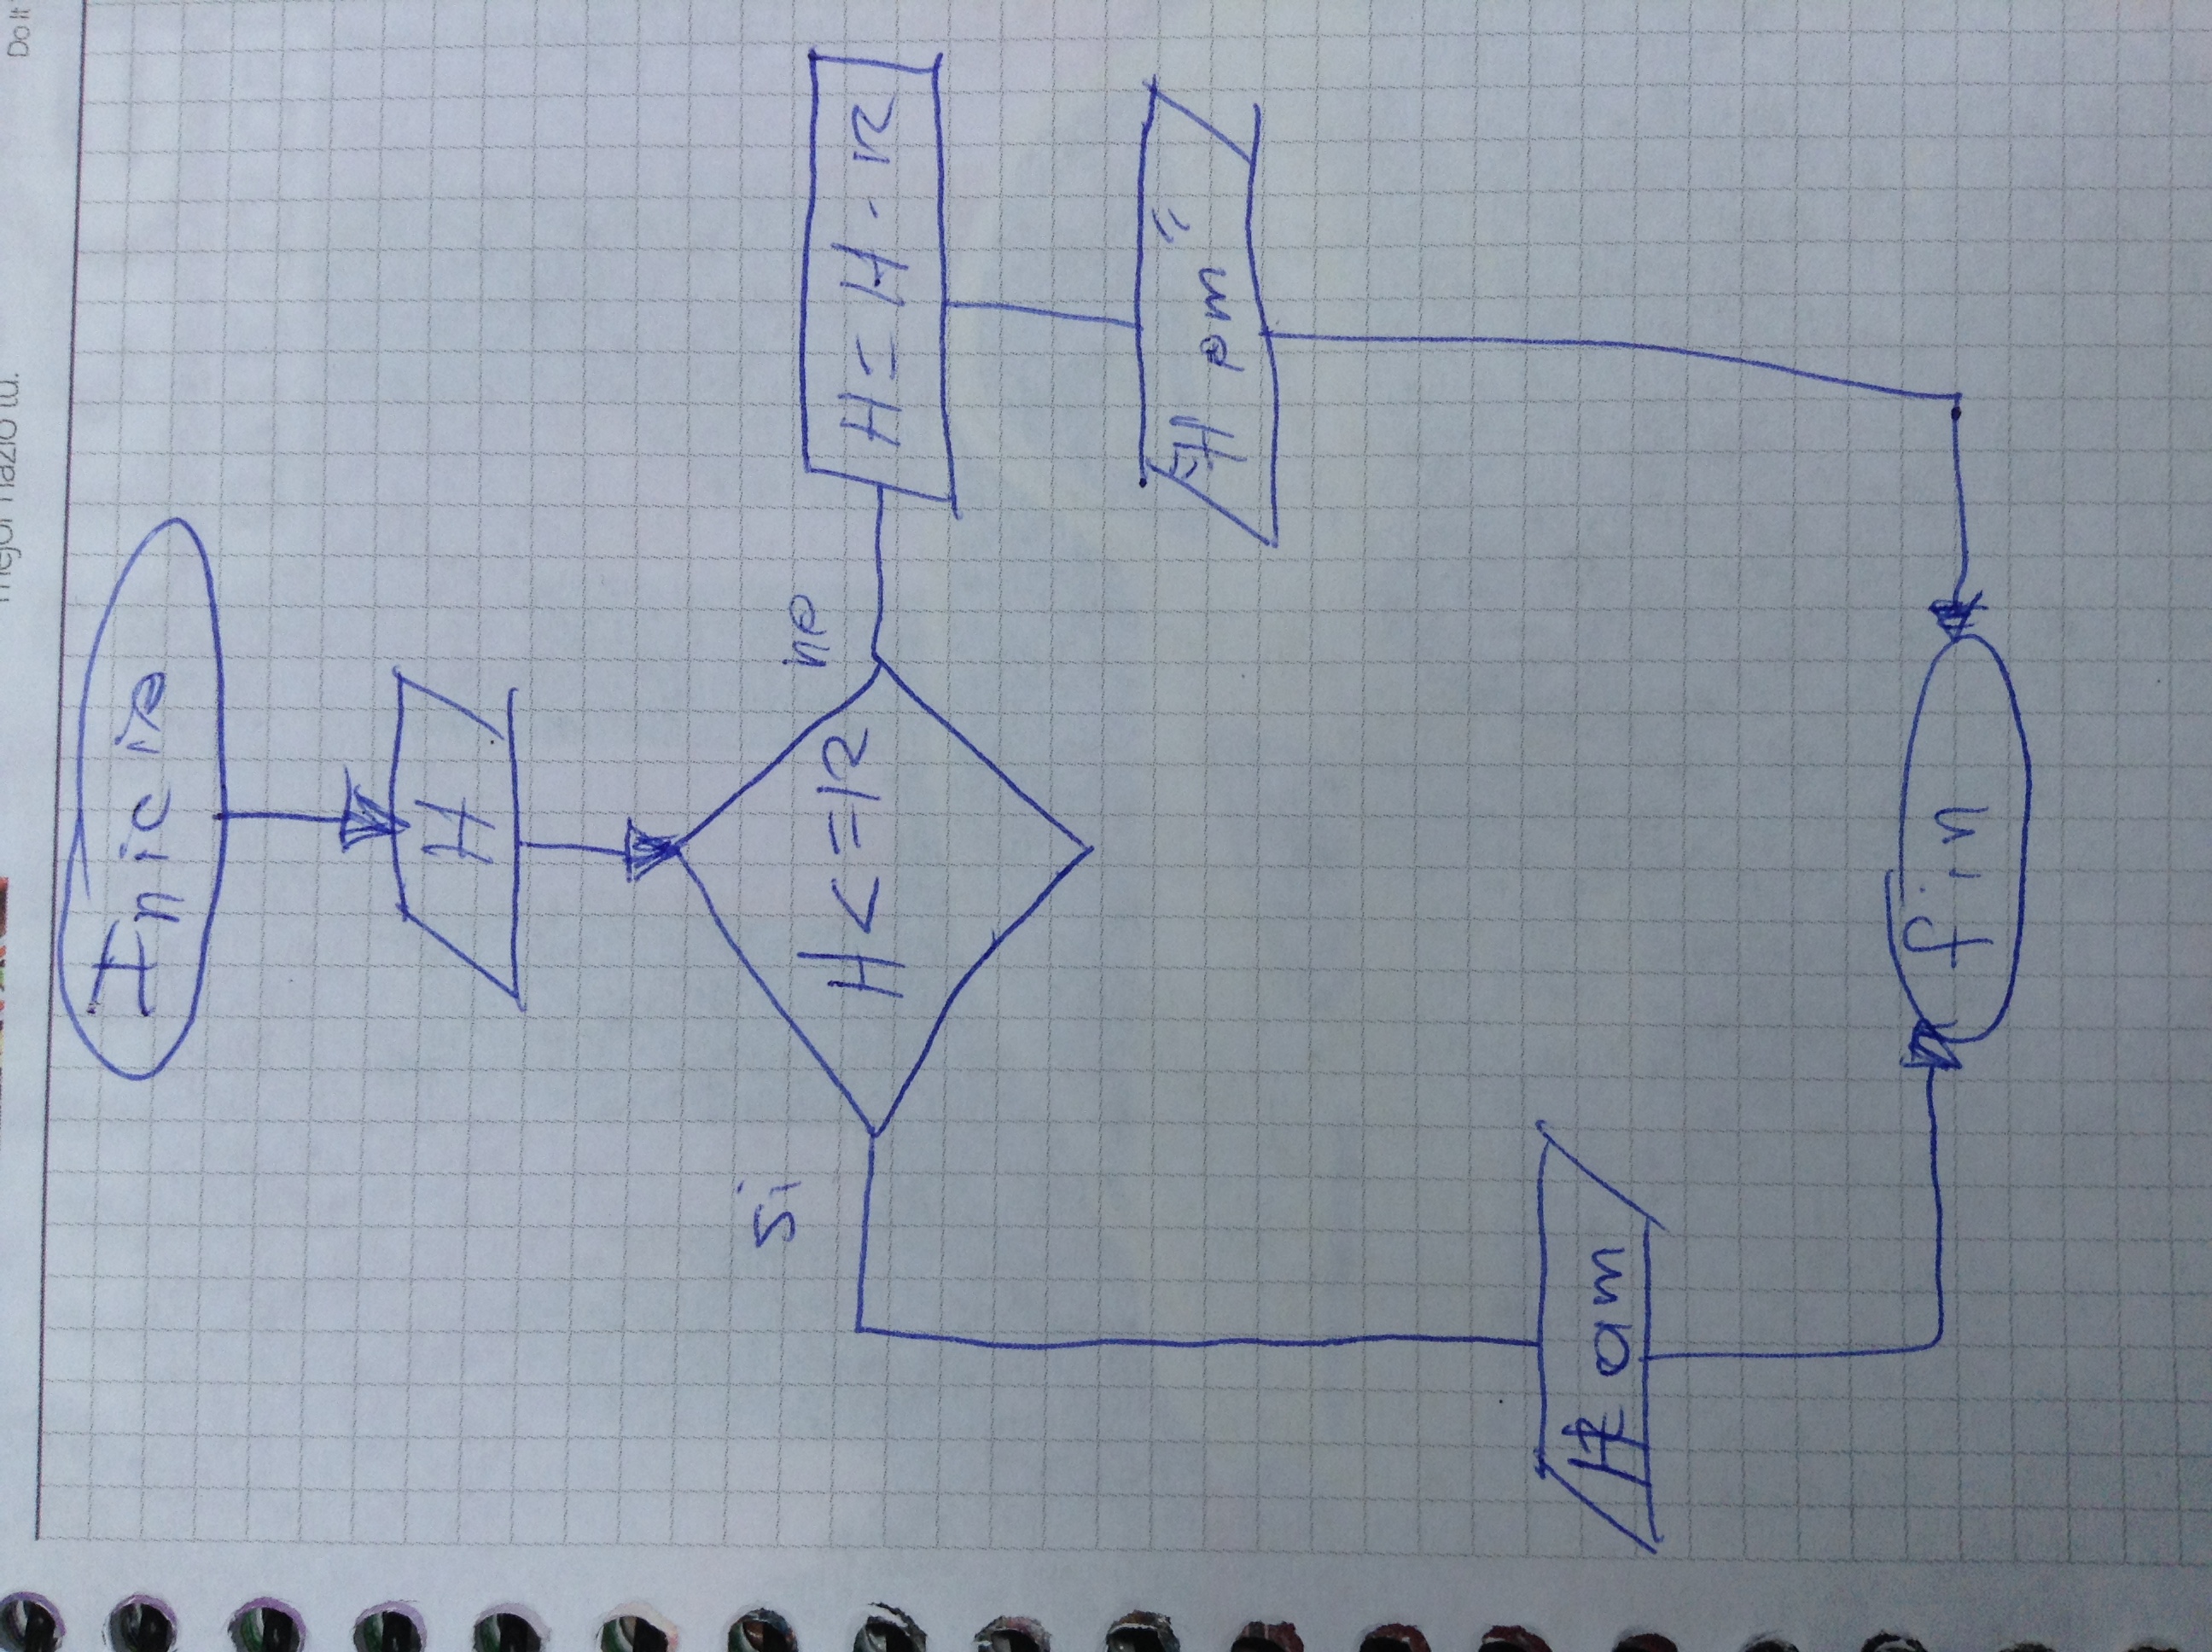 mejor nazio tu.
Do It
Inicio
H
si
no
H<=12
H=H-12
"H pm"
H am
fin